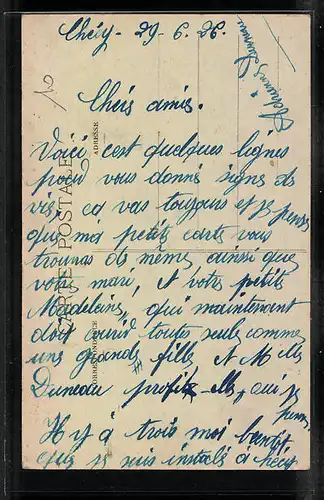 Chécy - 29-6-26.
Chers amis.
Voici c'est quelques lignes
pour vous donné signes de
vie, ça vas toujours et je pense
que ma petite carte vous
trouvas de même ainsi que
votre mari, et votre petite
Madeleine, qui maintenant
doit courir toutes seule comme
une grande fille, et Mlle
Duneau profit-elle, oui je
pense
Il y à trois moi bientôt
que je suis installé à Chécy
CARTE POSTALE
CORRESPONDANCE
ADRESSE